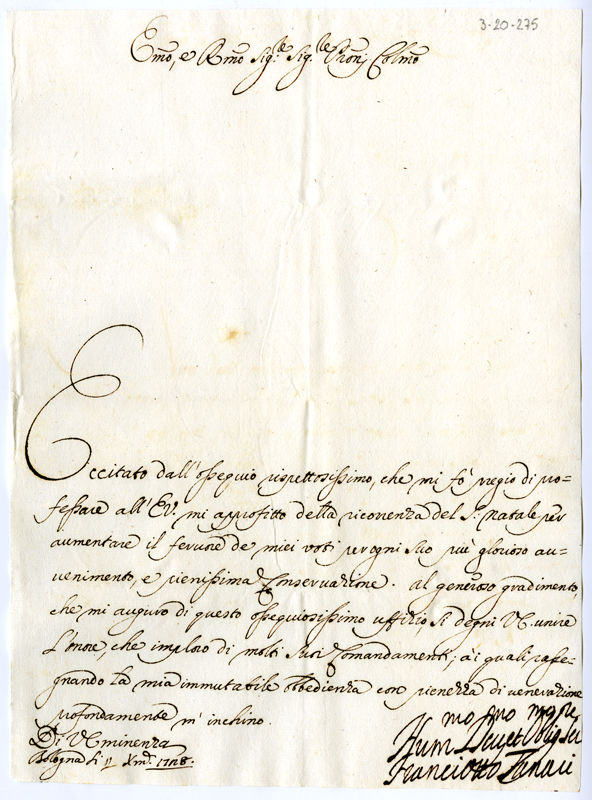 3-20-275
Emo, e Rmo Sig.re Sig.re Pron Colmo
Eccitato dall'ossequio rispettosissimo, che mi fò pregio di pro=
fessare all'E.V. mi approfitto della ricorrenza del S. Natale per
aumentare il fervore de miei voti per ogni suo più glorioso av=
venimento, e pienissima Conservazione. Al generoso gradimento,
che mi auguro di questo ossequiosissimo uffizio, si degni V.E. unire
l'onore, che imploro di molti suoi Comandamenti, a i quali rasse=
gnando la mia immutabile obbedienza con pienezza di venerazione
profondamente m'inchino.
Di V. Eminenza
Bologna li Xmbre 1728.
Hum.mo Devot.mo Oblig.mo Ser.re
Franciotto Tanari